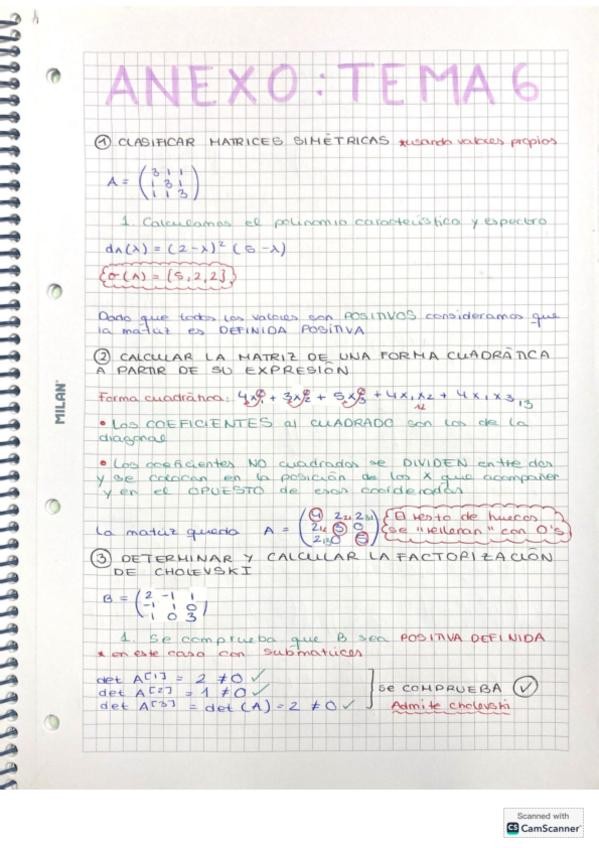 ANEXO: TEMA 6
① CLASIFICAR MATRICES SIMÉTRICAS *usando valores propios
A = (3 1 1
1 3 1
1 1 3)
1. Calculamos el polinomio característico y espectro
dA(λ) = (2-λ)² (5-λ)
{σ(A) = {5,2,2}}
Dado que todos los valores son POSITIVOS consideramos que
la matriz es DEFINIDA POSITIVA
② CALCULAR LA MATRIZ DE UNA FORMA CUADRÁTICA
A PARTIR DE SU EXPRESIÓN
Forma cuadrática: 4x²₁ + 3x²₂ + 5x²₃ + 4x₁x₂ + 4x₁x₃
12 13
• Los COEFICIENTES al CUADRADO son los de la
diagonal
• Los coeficientes NO cuadrados se DIVIDEN entre dos
y se colocan en la posición de los x que acompañen
y en el OPUESTO de esas coordenadas
La matriz queda A = (4 2 2
2 3 0
2 0 5) El resto de huecos
se "rellenan" con 0's
③ DETERMINAR Y CALCULAR LA FACTORIZACIÓN
DE CHOLEVSKI
B = (2 -1 1
-1 1 0
1 0 3)
1. Se comprueba que B sea POSITIVA DEFINIDA
* en este caso con submatrices
det A[1] = 2 ≠ 0 ✓
det A[2] = 1 ≠ 0 ✓
det A[3] = det (A) = 2 ≠ 0 ✓
Se COMPRUEBA ✓
Admite cholevski
MILAN
Scanned with
CS CamScanner